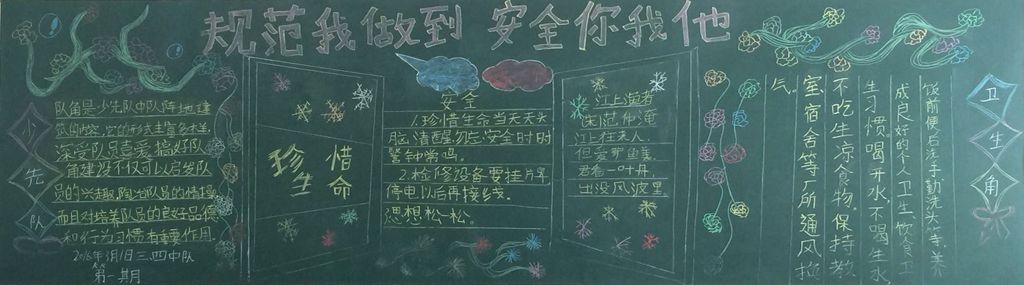 规范我做到 安全你我他
少先队
队角是少先队中队阵地建
设的内容,它的形式丰富多样
深受队员喜爱,搞好队
角建设不仅可以启发队
员的兴趣,陶冶队员的情操
而且对培养队员的良好品德
和行为习惯有重要作用
2016年3月1日三.四中队
第一期
珍惜
生命
安全
1.珍惜生命当天天头
脑清醒勿忘安全时时
警钟常鸣。
2.检修设备要挂片牌
停电以后再接线。
思想松一松。
江上渔者
宋范仲淹
江上往来人
但爱鲈鱼美
君看一叶舟
出没风波里
卫生角
饭前便后洗手勤洗头等,养
成良好的个人卫生、饮食卫
生习惯。喝开水,不喝生水
不吃生凉食物。保持教
室宿舍等厂所通风
气。